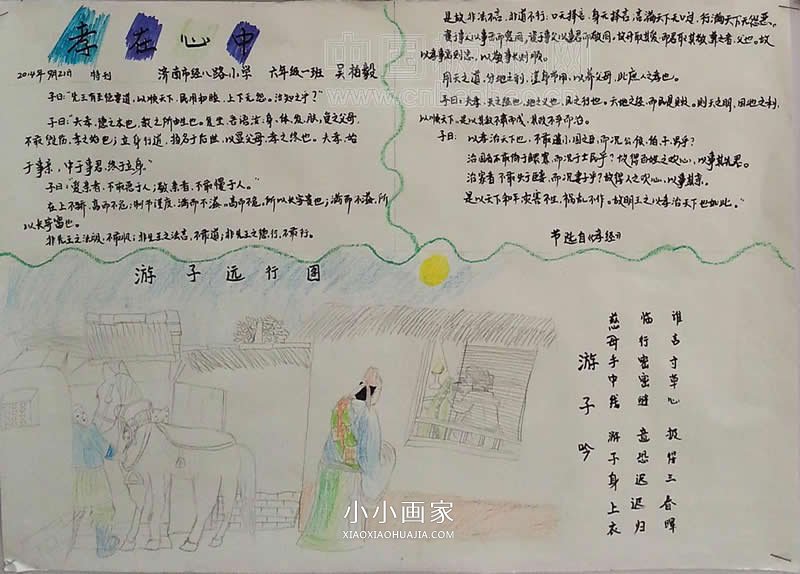 孝在心中
2014年9月21日 特刊 济南市经八路小学 六年级一班 吴柏毅
子曰:"先王有至德要道,以顺天下,民用和睦,上下无怨。汝知之乎?"
子曰:"夫孝,德之本也,教之所由生也。复坐,吾语汝。身、体、发、肤,受之父母,
不敢毁伤,孝之始也;立身行道,扬名于后世,以显父母,孝之终也。夫孝,始
于事亲,中于事君,终于立身。"
子曰:"爱亲者,不敢恶于人;敬亲者,不敢慢于人。"
在上不骄,高而不危;制节谨度,满而不溢。高而不危,所以长守贵也;满而不溢,所
以长守富也。
非先王之法服,不敢服;非先王之法言,不敢道;非先王之德行,不敢行。
是故非法不言,非道不行;口无择言,身无择言,言满天下无口过,行满天下无怨恶。
资于事父以事母而爱同,资于事父以事君而敬同,故母取其爱,而君取其敬,兼之者,父也。故
以孝事君则忠,以敬事长则顺。
用天之道,分地之利,谨身节用,以养父母,此庶人之孝也。
子曰:夫孝,天之经也,地之义也,民之行也。天地之经,而民是则之。则天之明,因地之利,
以顺天下,是以其教不肃而成,其政不严而治。
子曰:以孝治天下也,不敢遗小国之臣,而况公侯、伯、子、男乎?
治国者不敢侮于鳏寡,而况于士民乎?故得百姓之欢心,以事其先君。
治家者不敢失于臣妾,而况妻子乎?故得人之欢心,以事其亲。
是以天下和平,灾害不生,祸乱不作。故明王之以孝治天下也如此。"
节选自《孝经》
游子远行图
游子吟
慈母手中线 游子身上衣
临行密密缝 意恐迟迟归
谁言寸草心 报得三春晖
小小画家
XIAOXIAOHUAJIA.COM